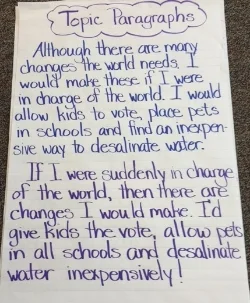 Topic Paragraphs
Although there are many
changes the world needs, I
would make these if I were
in charge of the world. I would
allow kids to vote, place pets
in schools and find an inexpen-
sive way to desalinate water.
If I were suddenly in charge
of the world, then there are
changes I would make. I'd
give kids the vote, allow pets
in all schools and desalinate
water inexpensively!